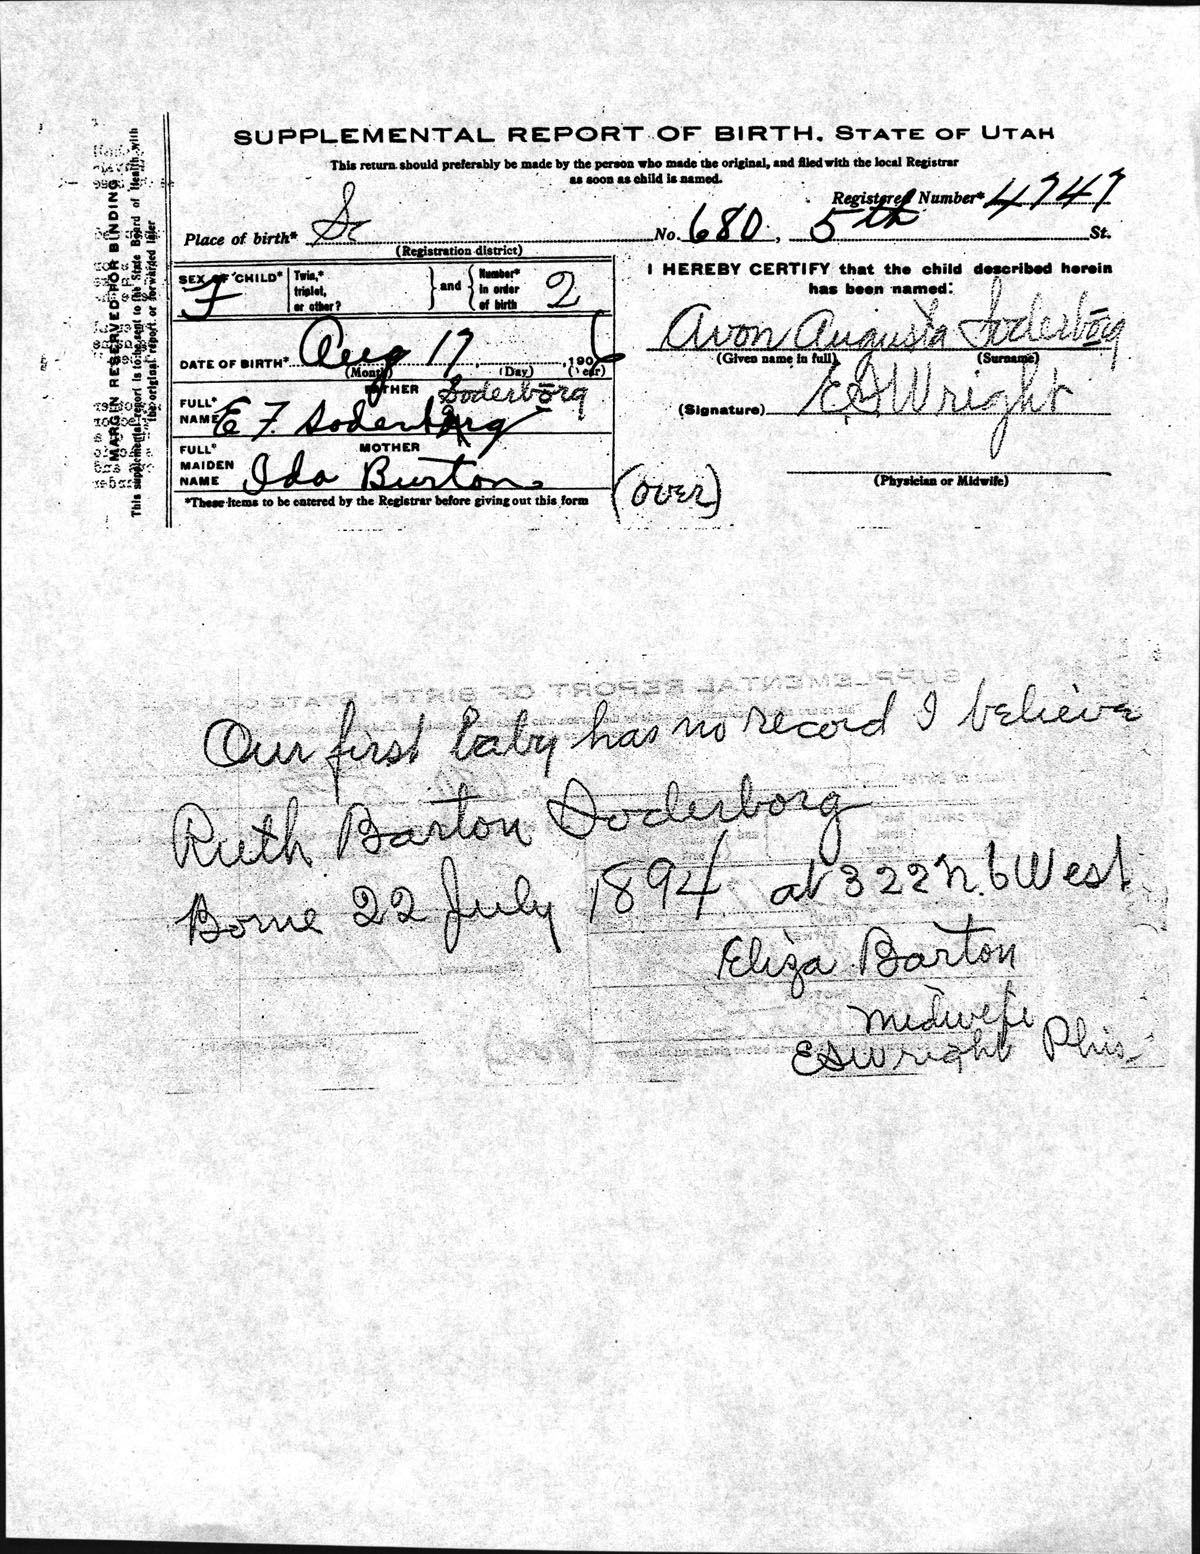 SUPPLEMENTAL REPORT OF BIRTH. STATE OF UTAH
This return should preferably be made by the person who made the original, and filed with the local Registrar
as soon as child is named.
Registered Number* 4747
Place of birth* SL No. 680, 5th St.
(Registration district)
SEX OF CHILD* F
Twin,* triplet, or other?
and
Number* in order of birth 2
DATE OF BIRTH* Aug 17, 190
(Month) (Day) (Year)
FATHER
FULL* NAME E F Soderborg Soderborg
MOTHER
FULL* MAIDEN NAME Ida Burton
*These items to be entered by the Registrar before giving out this form
I HEREBY CERTIFY that the child described herein
has been named:
Avon Augusta Soderborg
(Given name in full) (Surname)
(Signature) E S Wright
(Physician or Midwife)
(over)
MARGIN RESERVED FOR BINDING
This supplemental report is to be sent to the State Board of Health with
the original report or forwarded later
Our first baby has no record I believe
Ruth Barton Soderborg
Borne 22 July 1894 at 322 N. 6 West
Eliza Barton
Midwefe
E S Wright Phis